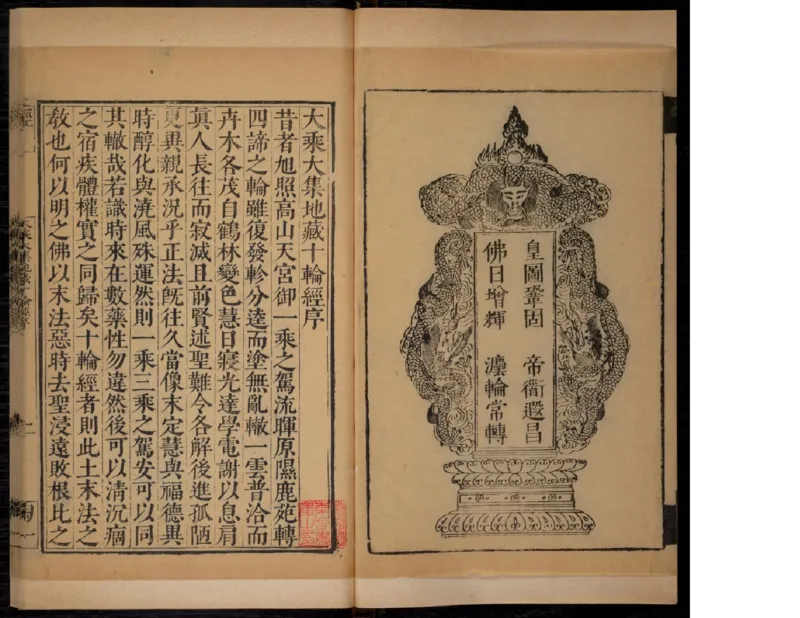 皇圖鞏固　帝衟遐昌
佛日增輝　灋輪常轉
大乘大集地藏十輪經序
昔者旭照高山天宮御一乘之駕流暉原隰鹿苑轉
四諦之輪雖復發軫分逵而塗無亂轍一雲普洽而
卉木各茂自鶴林變色慧日寢光達學電謝以息肩
眞人長往而寂滅且前賢述聖難令各解後進孤陋
更異親承況乎正法旣往久當像末定慧與福德異
時醇化與澆風殊運然則一乘三乘之駕安可以同
其轍哉若識時來在數藥性勿違然後可以清沉痼
之宿疾體權實之同歸矣十輪經者則此土末法之
敎也何以明之佛以末法惡時去聖浸遠敗根比之